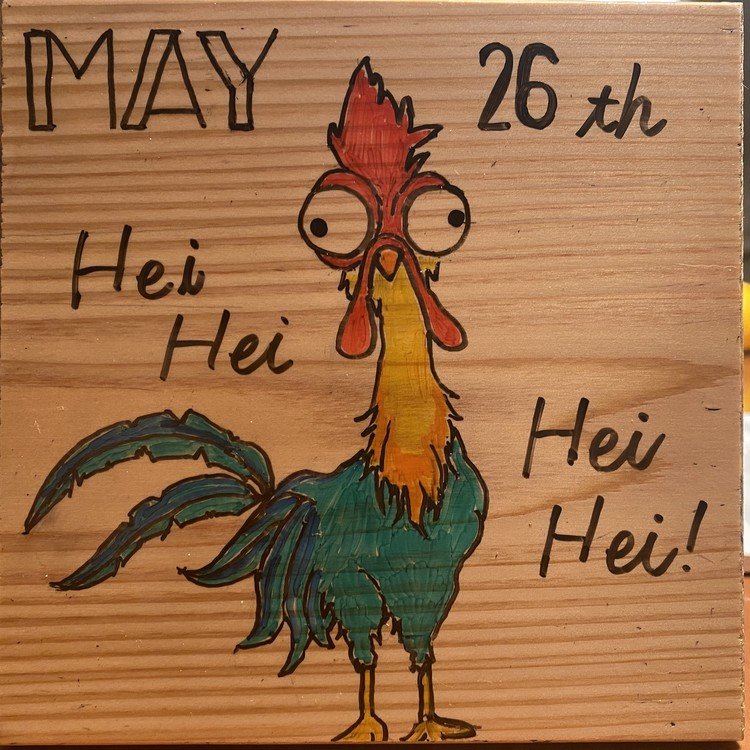 MAY 26th
Hei
Hei
Hei
Hei!